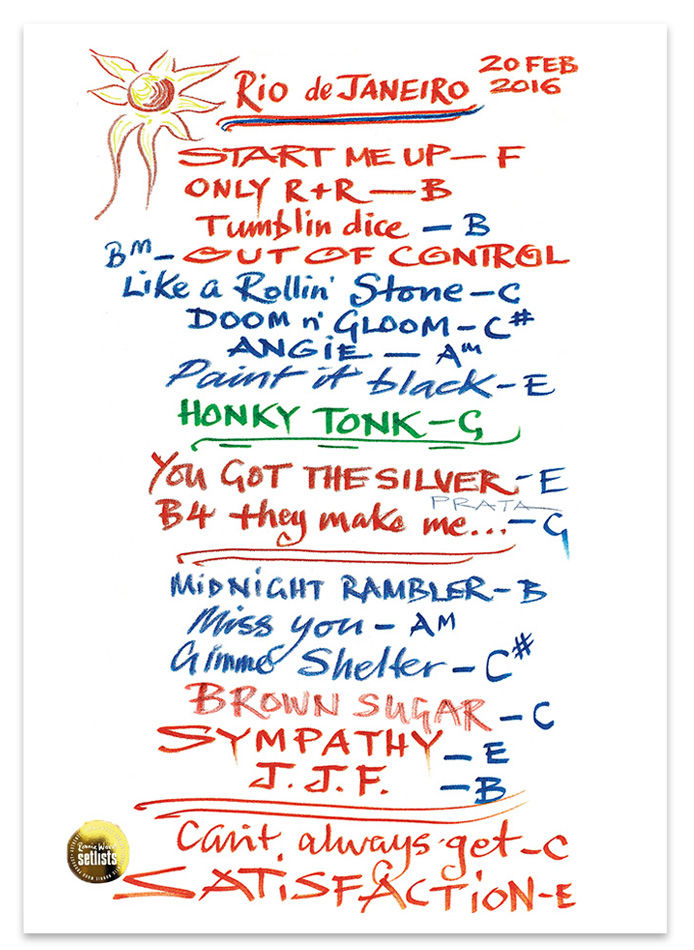 Rio de JANEIRO
20 FEB
2016
START ME UP – F
ONLY R+R — B
Tumblin dice – B
Bᴹ – OUT OF CONTROL
Like a Rollin' Stone – C
DOOM n' GLOOM – C#
ANGiE — Aᵐ
Paint it black – E
HONKY TONK – G
YOU GOT THE SILVER – E
PRATA
B4 they make me... – G
MiDNIGHT RAMBLER – B
Miss you – AM
Gimme Shelter – C#
BROWN SUGAR – C
SYMPATHY – E
J.J.F. – B
Can't always get – C
SATiSFACTiON – E
Ronnie Wood
setlists